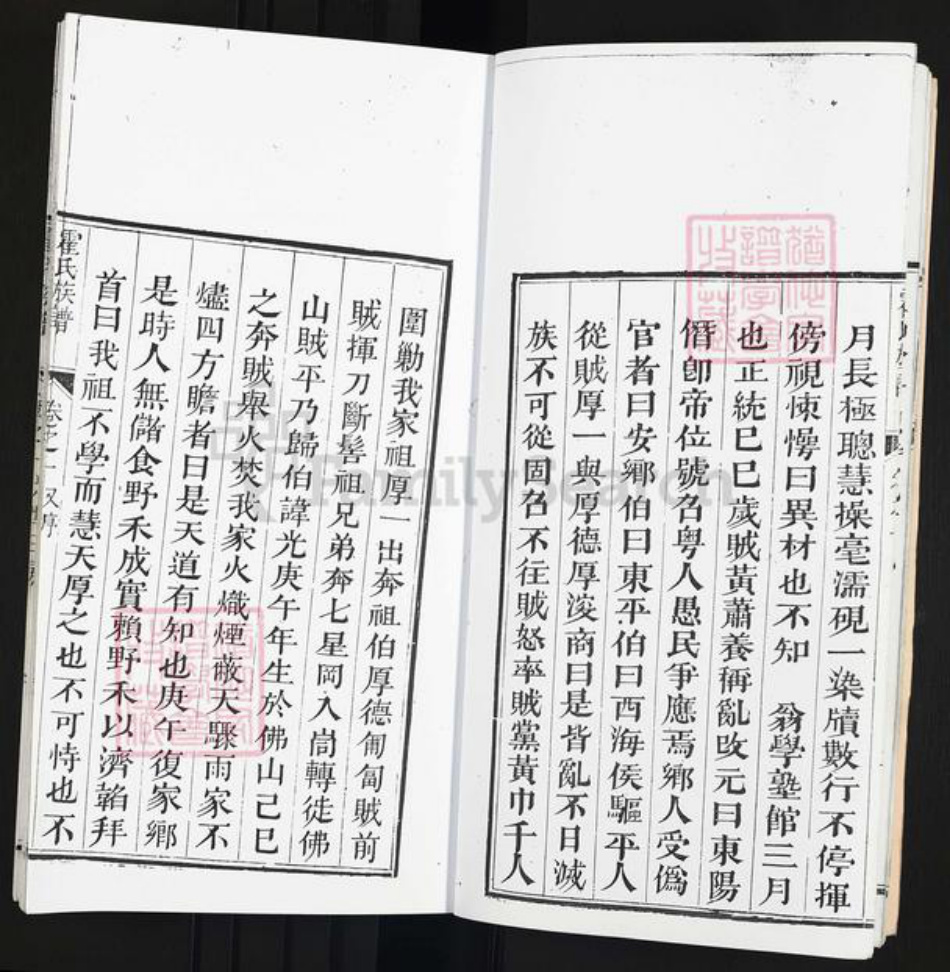 月長極聰慧操毫濡硯一染牘數行不停揮
傍視悚愕曰異材也不知 翁學塾館三月
也正統巳巳歲賊黃蕭養稱亂改元曰東陽
僭卽帝位號召粤人愚民爭應焉鄉人受僞
官者曰安鄉伯曰東平伯曰西海侯驅平人
從賊厚一與厚德厚浚商曰是皆亂不日滅
族不可從固召不往賊怒率賊黨黃巾千人
圍勦我家祖厚一出奔祖伯厚德匍匐賊前
賊揮刀斷髻祖兄弟奔七星岡入
山賊平乃歸伯諱光庚午年生於佛山己巳
之奔賊舉火焚我家火熾煙蔽天驟雨家不
燼四方瞻者曰是天道有知也庚午復家鄉
是時人無儲食野禾成實賴野禾以濟韜拜
首曰我祖不學而慧天厚之也不可恃也不
霍氏族譜
卷之一 又序
FamilySearch